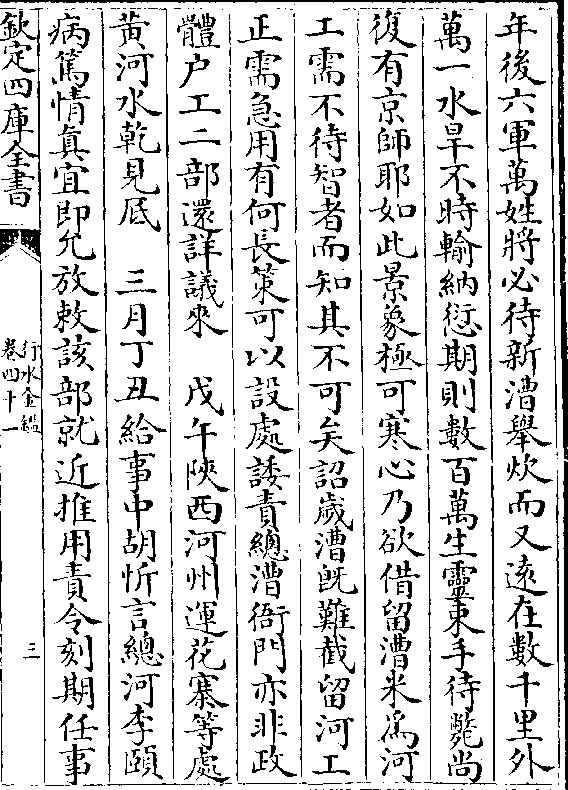 年後六軍萬姓將必待新漕舉炊而又遠在數千里外
萬一水旱不時輸納愆期則數百萬生靈束手待斃尚
復有京師耶如此景象極可寒心乃欲借留漕米爲河
工需不待智者而知其不可矣詔歲漕旣難截留河工
正需急用有何長策可以設處諉責總漕衙門亦非政
體户工二部還詳議來　戊午陜西河州運花寨等處
黃河水乾見底　三月丁丑給事中胡忻言總河李頤
病篤情真宜即允放敕該部就近推用責令刻期任事
欽定四庫全書
行水金鑑
卷四十一
三